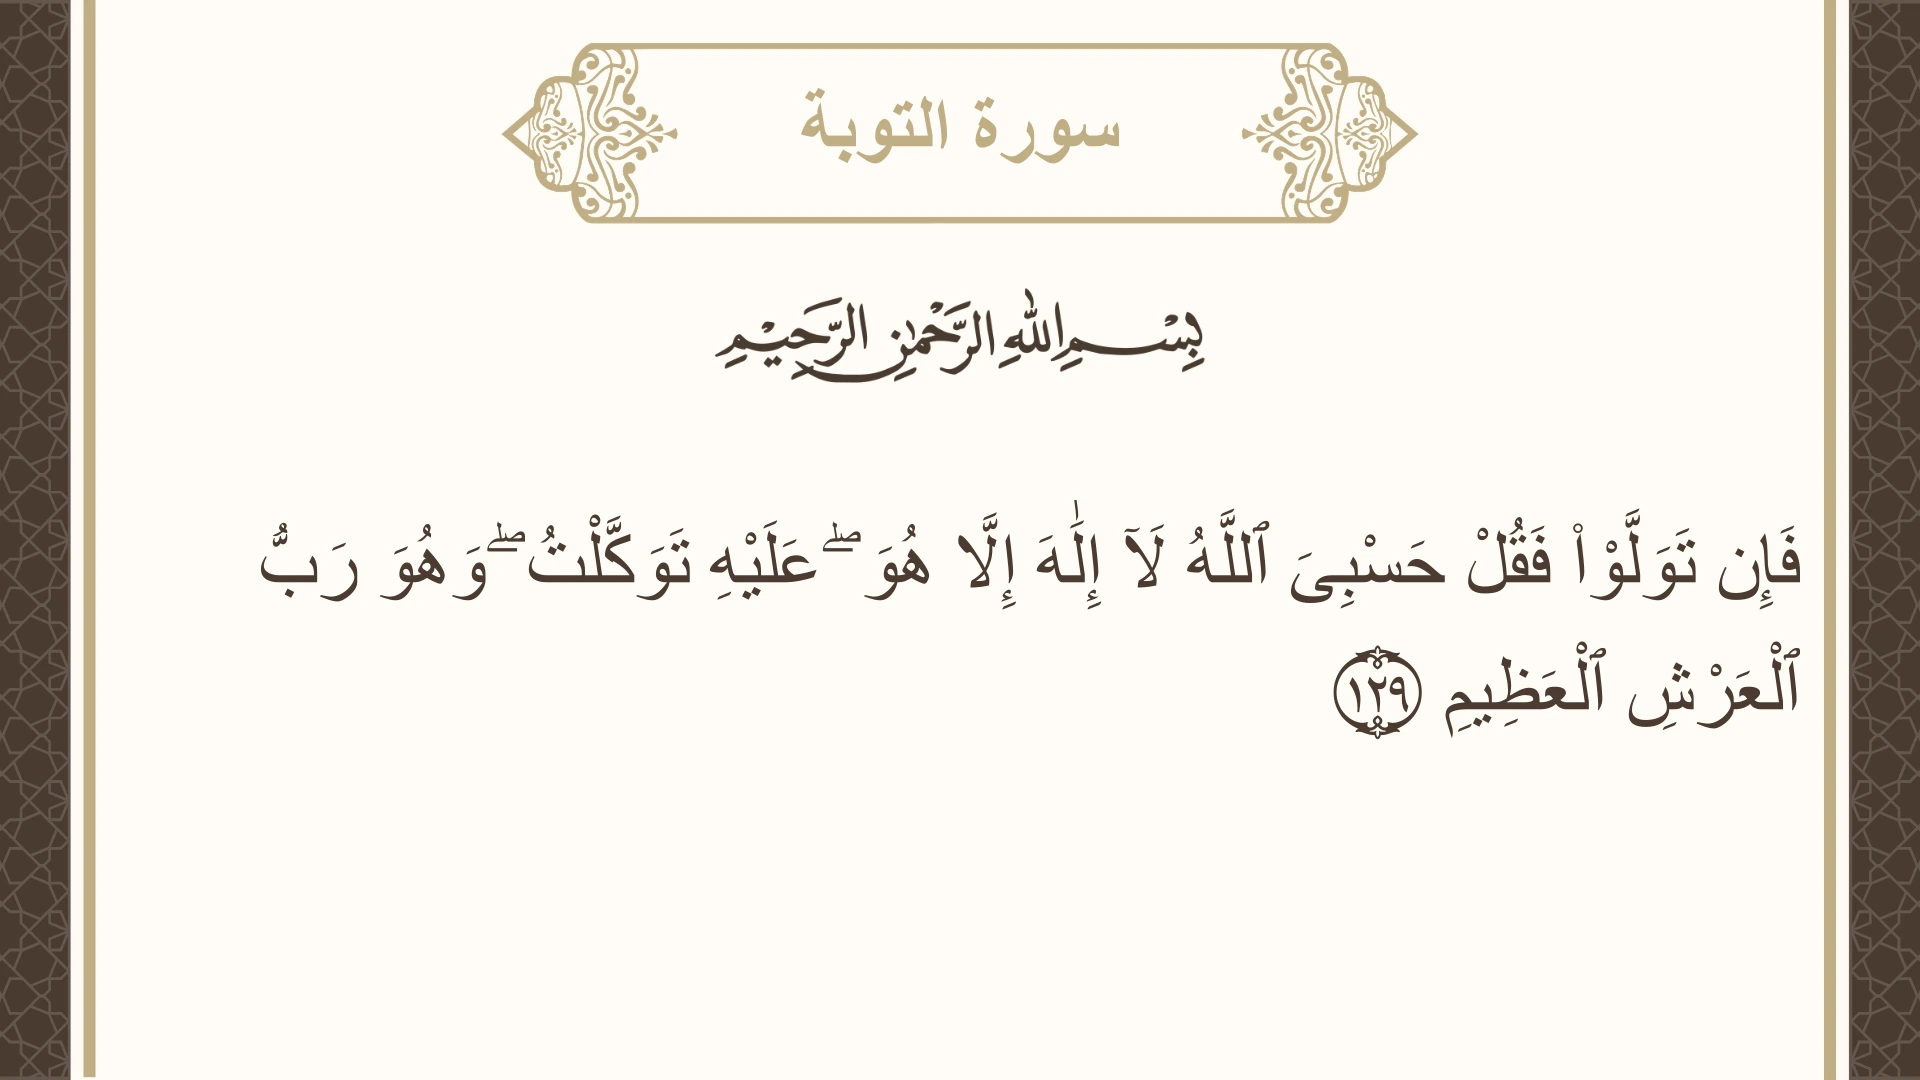 سورة التوبة
بِسْمِ اللهِ الرَّحْمٰنِ الرَّحِيْمِ
فَإِن تَوَلَّوْا۟ فَقُلْ حَسْبِىَ ٱللَّهُ لَآ إِلَٰهَ إِلَّا هُوَ ۖ عَلَيْهِ تَوَكَّلْتُ ۖ وَهُوَ رَبُّ
ٱلْعَرْشِ ٱلْعَظِيمِ ١٢٩